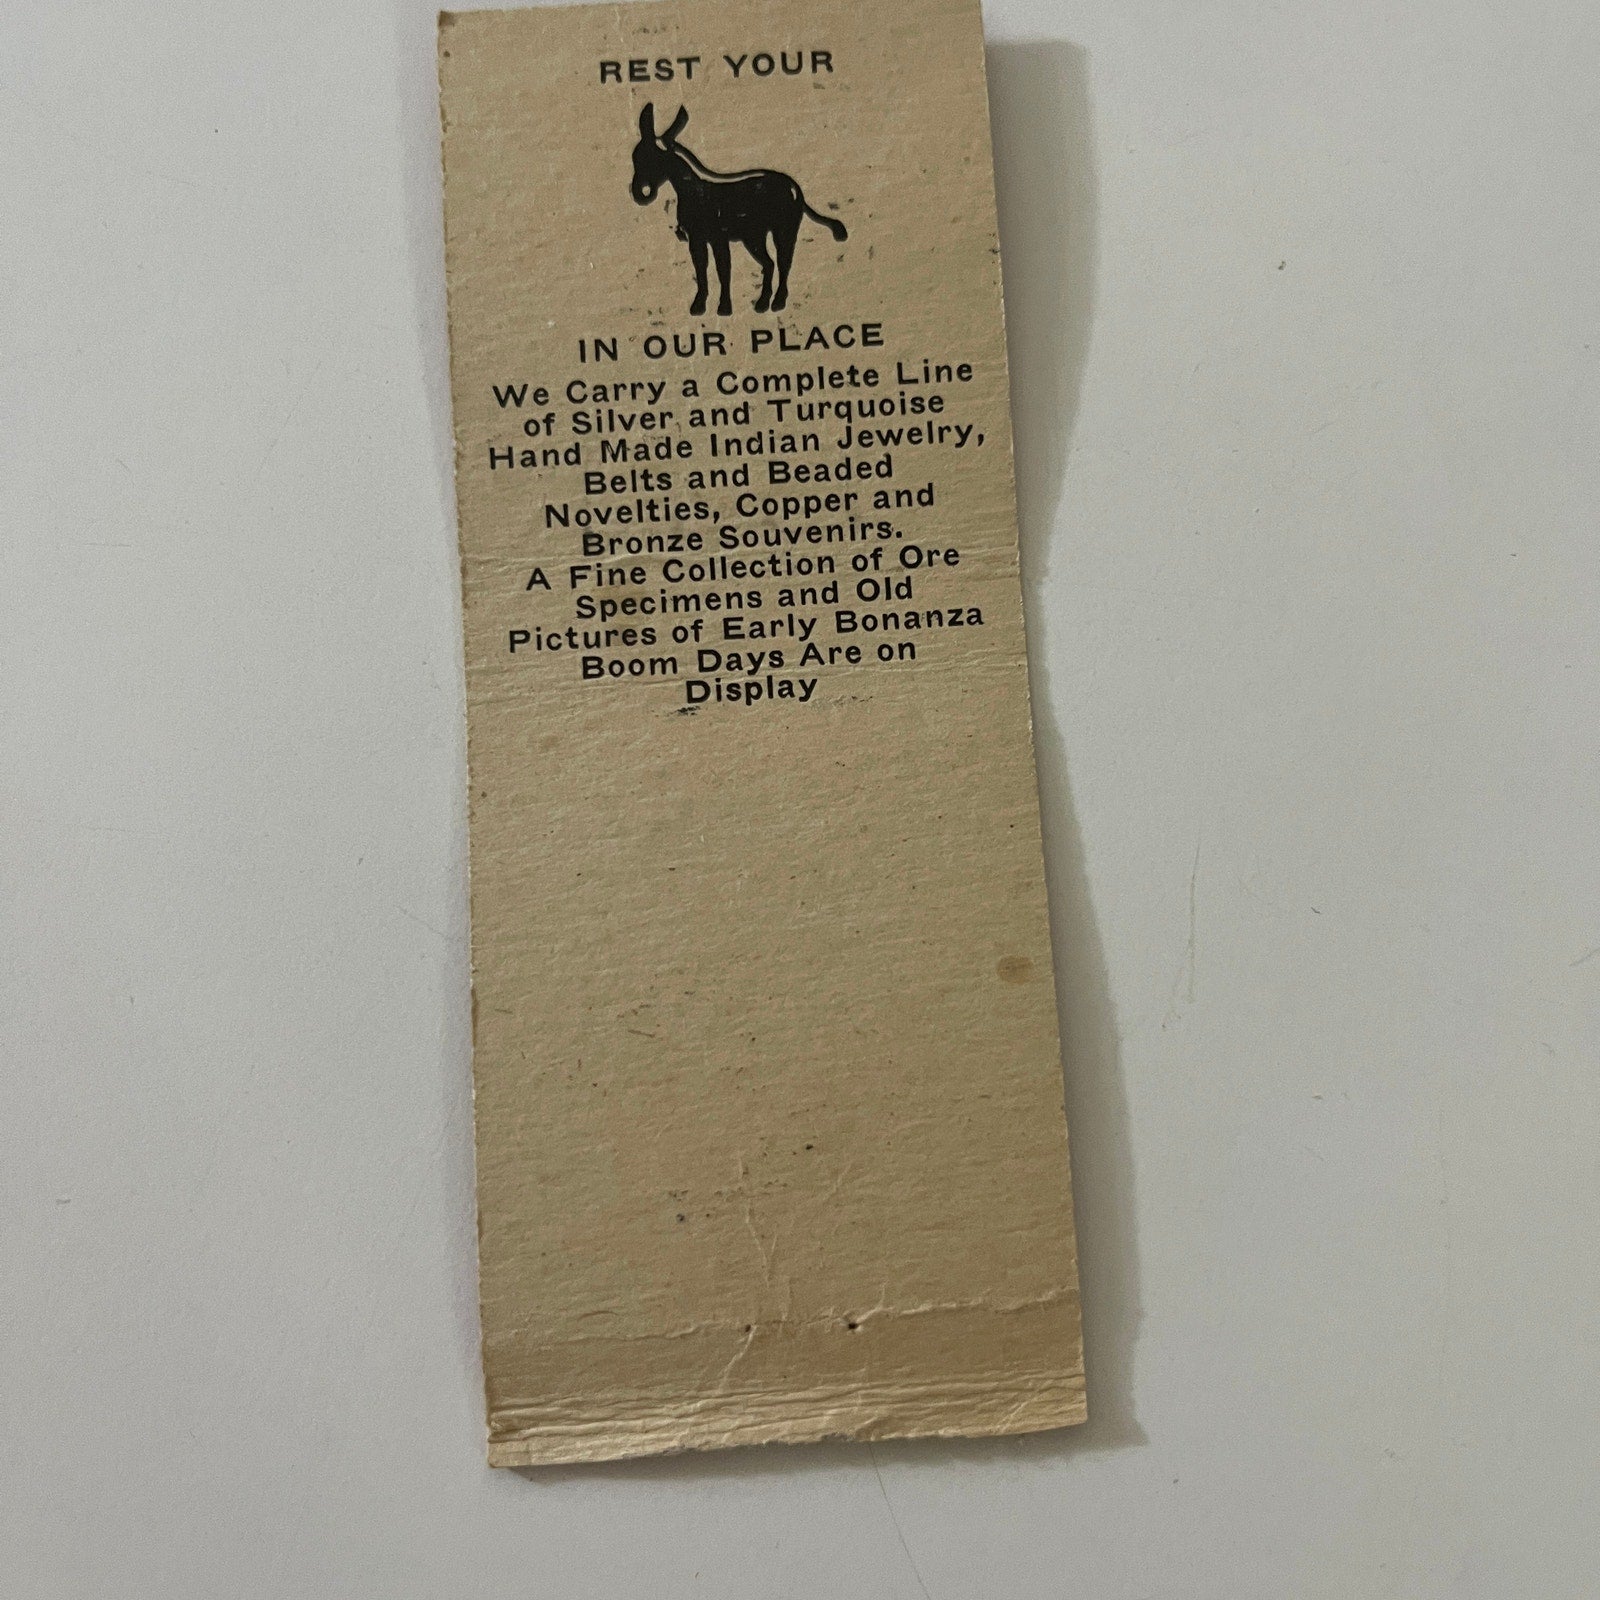 REST YOUR
IN OUR PLACE
We Carry a Complete Line
of Silver and Turquoise
Hand Made Indian Jewelry,
Belts and Beaded
Novelties, Copper and
Bronze Souvenirs.
A Fine Collection of Ore
Specimens and Old
Pictures of Early Bonanza
Boom Days Are on
Display